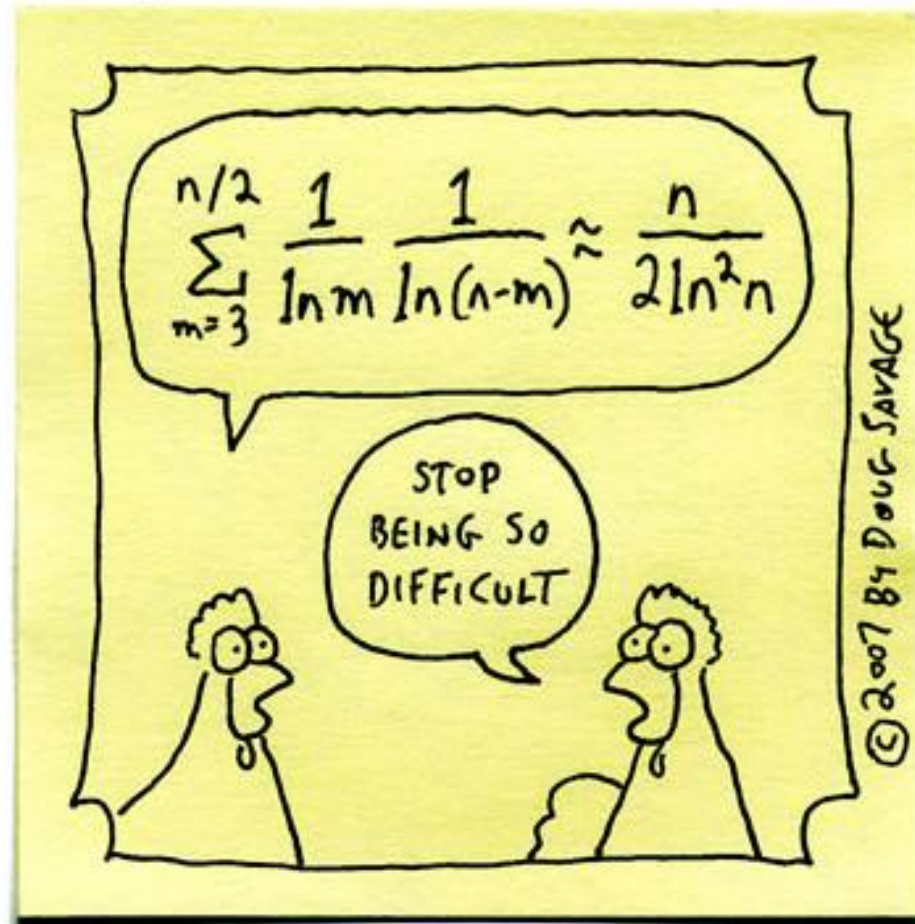 n/2
∑ 1/ln m 1/ln(n-m) ≈ n/2ln²n
m=3
STOP
BEING SO
DIFFICULT
© 2007 BY DOUG SAVAGE